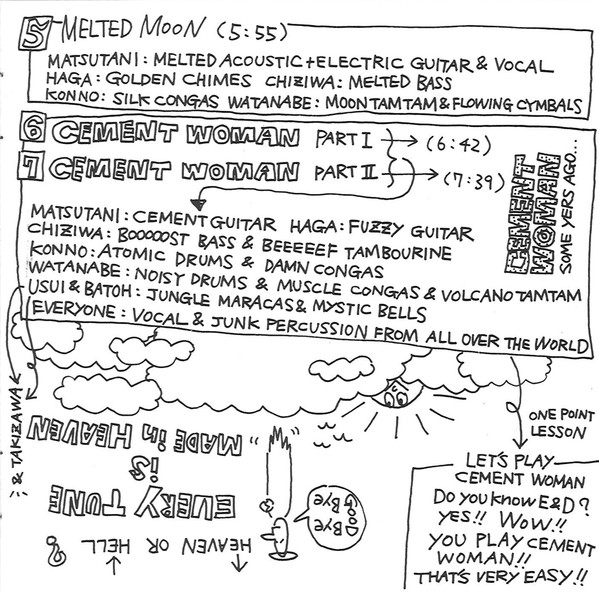 5 MELTED MOON (5:55)
MATSUTANI: MELTED ACOUSTIC+ELECTRIC GUITAR & VOCAL
HAGA: GOLDEN CHIMES CHIZIWA: MELTED BASS
KONNO: SILK CONGAS WATANABE: MOON TAMTAM & FLOWING CYMBALS
6 CEMENT WOMAN PART I → (6:42)
7 CEMENT WOMAN PART II → (7:39)
CEMENT
WOMAN
SOME YERS AGO...
MATSUTANI: CEMENT GUITAR HAGA: FUZZY GUITAR
CHIZIWA: BOOOOOST BASS & BEEEEEF TAMBOURINE
KONNO: ATOMIC DRUMS & DAMN CONGAS
WATANABE: NOISY DRUMS & MUSCLE CONGAS & VOLCANO TAMTAM
USUI & BATOH: JUNGLE MARACAS & MYSTIC BELLS
EVERYONE: VOCAL & JUNK PERCUSSION FROM ALL OVER THE WORLD
& TAKIZAWA
HEAVEN OR HELL ?
EVERY TUNE
is
"MADE in HEAVEN"
GOOD
BYE
BYE
ONE POINT
LESSON
LET'S PLAY
CEMENT WOMAN
DO YOU KNOW E&D?
YES!! WOW!!
YOU PLAY CEMENT
WOMAN!!
THAT'S VERY EASY!!